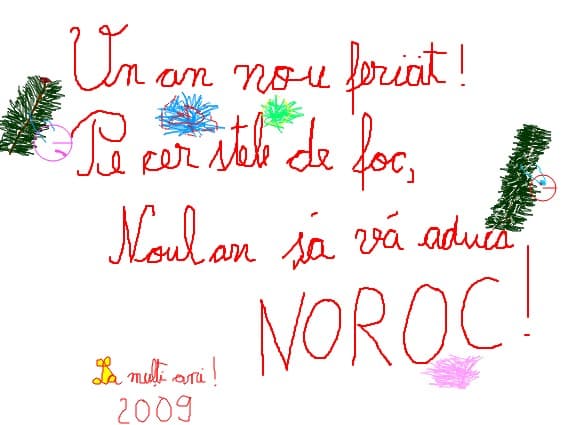 Un an nou fericit!
Pe cer stele de foc,
Noul an să vă aducă
NOROC!
La mulți ani!
2009